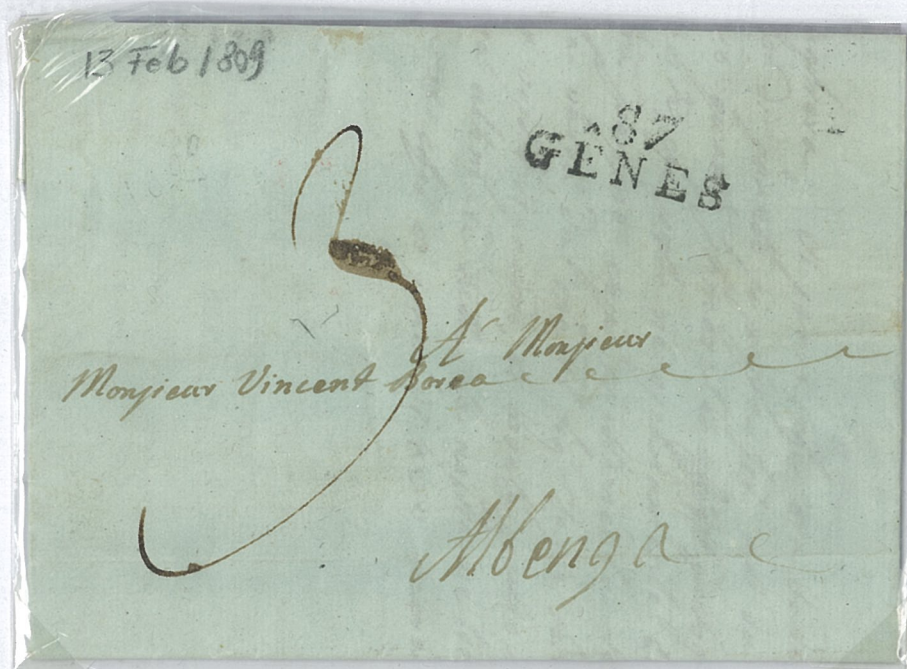 13 Feb 1809
87
GÊNES
3
A Monsieur
Monsieur Vincent Borea
Albenga